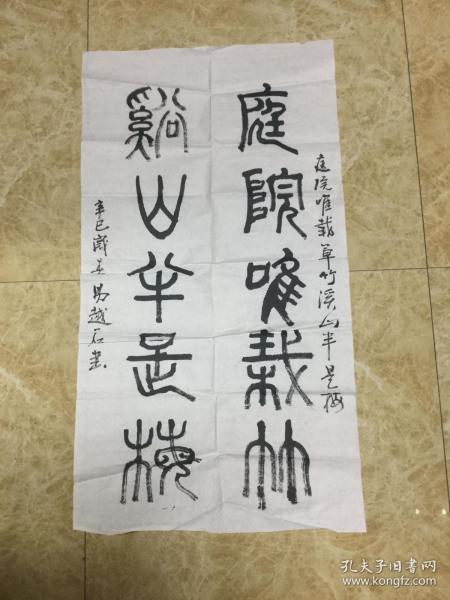 庭院唯栽草竹溪山半是梅
庭院唯栽竹
谿山半是梅
辛巳岁春易越石书
孔夫子旧书网
www.kongfz.com